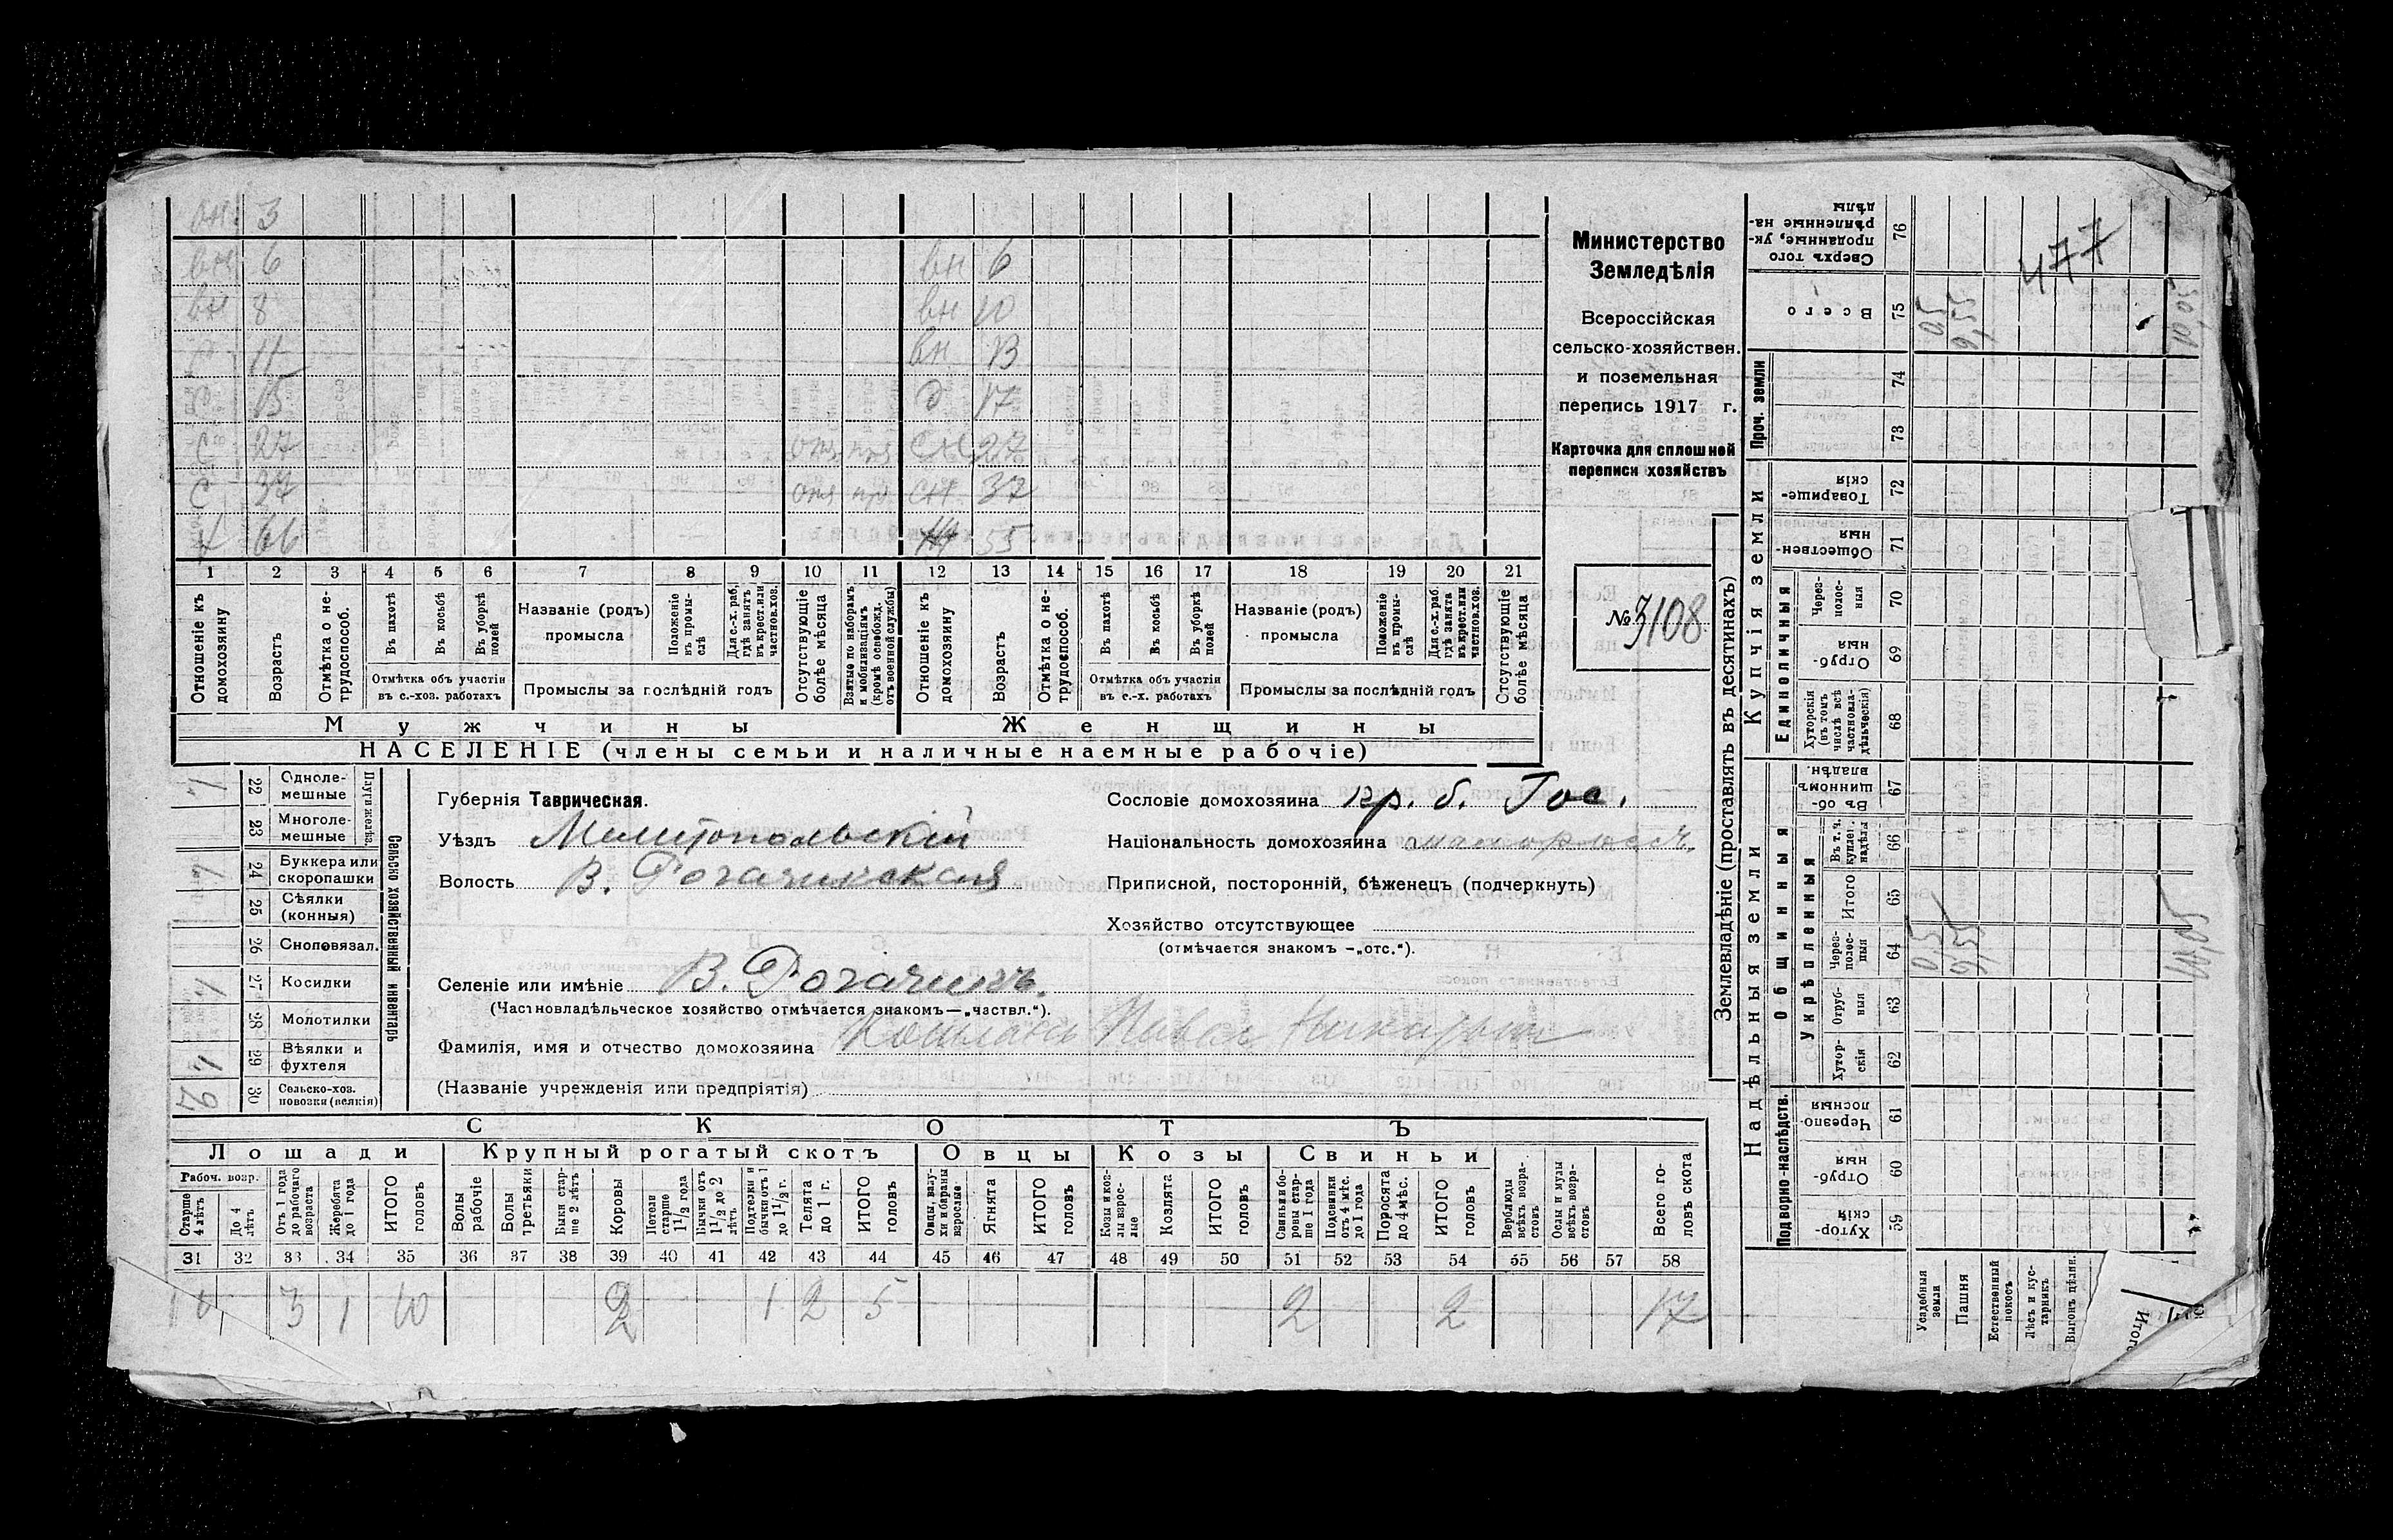 он. 3
вн 6 вн 6
вн 8 вн 10
с 11 вн 13
с 15 д 17
с 27 сн 27
с 37 сн 37
х 66 55
1 2 3 4 5 6 7 8 9 10 11 12 13 14 15 16 17 18 19 20 21
Отношеніе къ домохозяину
Возрастъ
Отмѣтка о нетрудоспособ.
Въ пахотѣ
Въ косьбѣ
Въ уборкѣ полей
Отмѣтка объ участіи въ с.-хоз. работахъ
Названіе (родъ) промысла
Положеніе въ промыслѣ
Для с.-х. раб. гдѣ занятъ въ крест. или частнов. хоз.
Промыслы за послѣдній годъ
Отсутствующіе болѣе мѣсяца
Взятые по наборамъ и мобилизаціямъ (кромѣ освобожд. отъ военной службы)
Отношеніе къ домохозяину
Возрастъ
Отмѣтка о нетрудоспособ.
Въ пахотѣ
Въ косьбѣ
Въ уборкѣ полей
Отмѣтка объ участіи въ с.-х. работахъ
Названіе (родъ) промысла
Положеніе въ промыслѣ
Для с.-х. раб. гдѣ занята въ крест. или частнов. хоз.
Промыслы за послѣдній годъ
Отсутствующіе болѣе мѣсяца
Мужчины Женщины
НАСЕЛЕНІЕ (члены семьи и наличные наемные рабочіе)
Министерство
Земледѣлія
Всероссійская
сельско-хозяйствен.
и поземельная
перепись 1917 г.
Карточка для сплошной
переписи хозяйствъ
№ 3108
Сельско хозяйственный инвентарь
Плуги желѣз.
22 Одноле-мешные 1
23 Многоле-мешные
24 Буккера или скоропашки 1
25 Сѣялки (конныя)
26 Сноповязал.
27 Косилки 1
28 Молотилки
29 Вѣялки и фухтеля 1
30 Сельско-хоз. повозки (всякія) 2
Губернія Таврическая.
Уѣздъ Мелитопольскій
Волость В. Рогачикская
Сословіе домохозяина кр. б. Гос.
Національность домохозяина малорос.
Приписной, посторонній, бѣженецъ (подчеркнуть)
Хозяйство отсутствующее
(отмѣчается знакомъ —„отс.“).
Селеніе или имѣніе В. Рогачикъ.
(Частновладѣльческое хозяйство отмѣчается знакомъ—„частвл.“).
Фамилія, имя и отчество домохозяина Павелъ
(Названіе учрежденія или предпріятія)
СКОТЪ
Лошади Крупный рогатый скотъ Овцы Козы Свиньи
Рабоч. возр.
Старше 4 лѣтъ
До 4 лѣтъ
Отъ 1 года до рабочаго возраста
Жеребята до 1 года
ИТОГО головъ
Волы рабочіе
Волы третьяки
Быки старше 2 лѣтъ
Коровы
Нетели старше 1½ года
Бычки отъ 1½ до 2 лѣтъ
Подтелки и бычки отъ 1 до 1½ г.
Телята до 1 г.
ИТОГО головъ
Овцы, валухи и бараны взрослые
Ягнята
ИТОГО головъ
Козы и козлы взрослые
Козлята
ИТОГО головъ
Свиньи и боровы старше 1 года
Подсвинки отъ 4 мѣс. до 1 года
Поросята до 4 мѣс.
ИТОГО головъ
Верблюды всѣхъ возрастовъ
Ослы и мулы всѣхъ возрастовъ
Всего головъ скота
31 32 33 34 35 36 37 38 39 40 41 42 43 44 45 46 47 48 49 50 51 52 53 54 55 56 57 58
3 1 10 2 1 2 5 2 2 17
Землевладѣніе (проставлять въ десятинахъ)
Надѣльныя земли Купчія земли Проч. земли
Подворно-наслѣдств. Общинныя Единоличныя
Укрѣпленныя
59 Хуторскія
60 Отрубныя
61 Черезполосныя
62 Хуторскія
63 Отрубныя
64 Черезполосныя
65 Итого
66 Въ т. ч. куплен. надѣлы
67 Въ общинномъ владѣн.
68 Хуторскія (въ томъ числѣ всѣ частновладѣльческія)
69 Отрубныя
70 Черезполосныя
71 Общественныя
72 Товарищескія
73
74
75 Всего
76 Сверхъ того проданные, укрѣпленные надѣлы
477
Усадебная земля
Пашня
Естественный покосъ
Лѣсъ и кустарникъ
Выгонъ цѣлин.